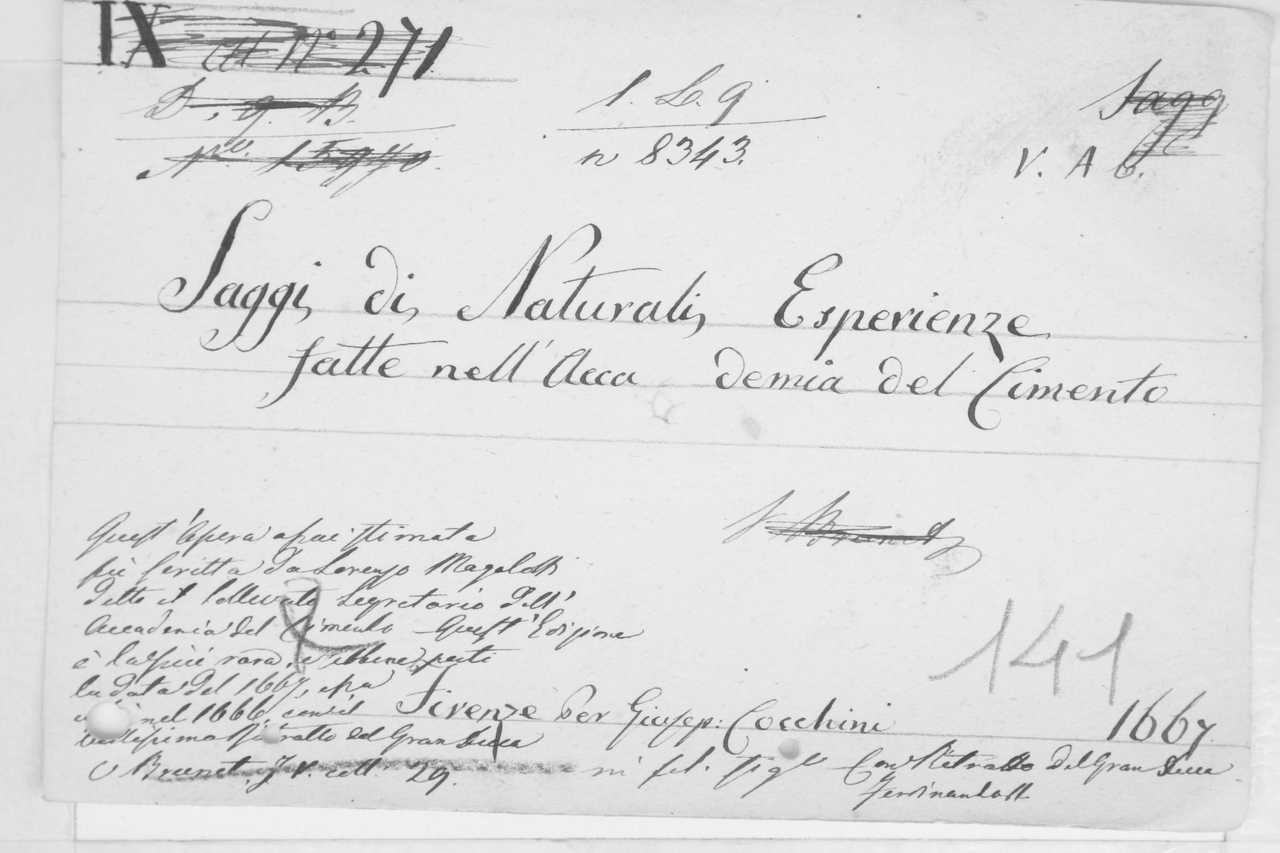 IX 271
D. g. B. 1. Lo. 9 Sagg
N.º 15970. n 8343. V. A 6.
Saggi di Naturali Esperienze
fatte nell'Acca demia del Cimento
V Brunet
Quest'Opera assai stimata
fù scritta da Lorenzo Magalotti
detto il Sollevato Segretario dell'
Accademia del Cimento Quest'Edizione
è la più rara, e sebbene porti
la data del 1667, 
nel 1666, con il
bellissimo Ritratto del Gran Duca
V Brunet 29.
141
Firenze Per Giusepp: Cocchini 1667
in fol. figº Con Ritratto del Gran Duca
Ferdinando II